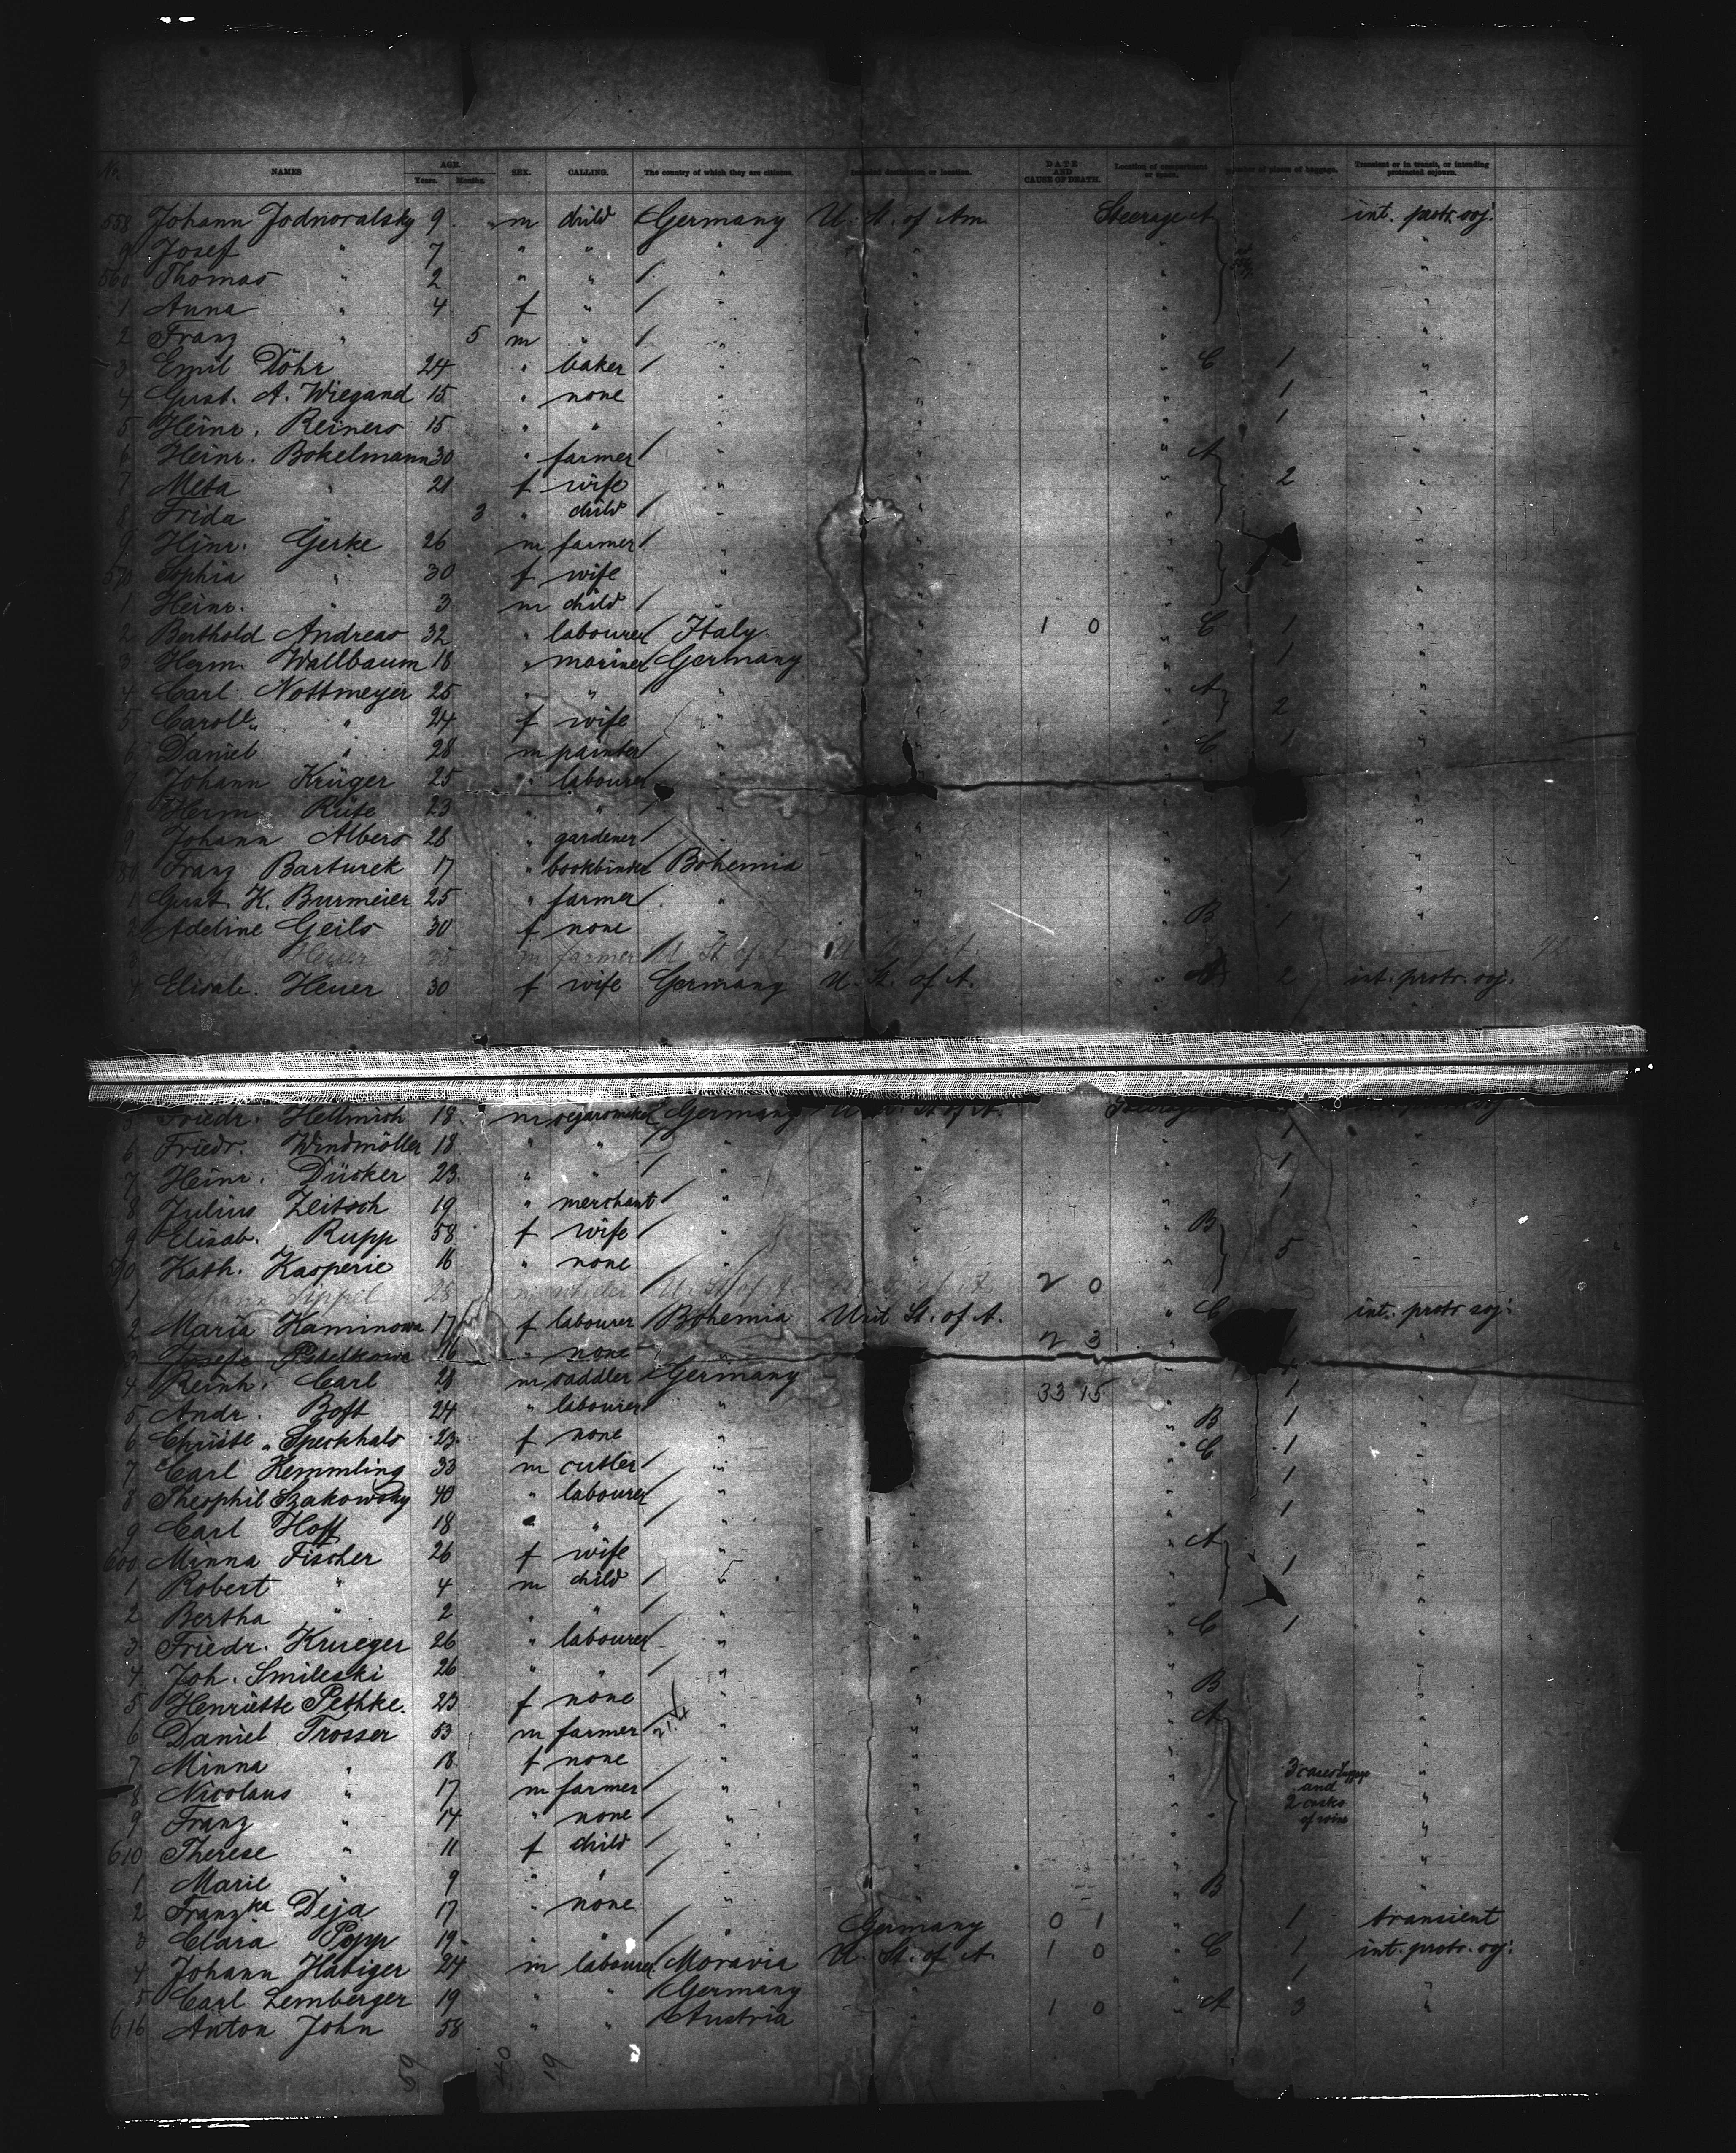 No. NAMES AGE. Years. Months. SEX. CALLING. The country of which they are citizens. Intended destination or location. DATE AND CAUSE OF DEATH. Location of compartment or space. Number of pieces of baggage. Transient or in transit, or intending protracted sojourn.
558 Johann Jodnoralsky 9 m child Germany U. St. of Am. Steerage A int. protr. soj.
9 Josef " 7 " " " " " "
560 Thomas " 2 " " " " " "
1 Anna " 4 f " " " " "
2 Franz " 5 m " " " " "
3 Emil Döhr 24 " baker " " " C 1 "
4 Gust. A. Wiegand 15 " none " " " 1 "
5 Heinr. Reiners 15 " " " " " 1 "
6 Heinr. Bokelmann 30 " farmer " " " A "
7 Meta " 21 f wife " " " 2 "
8 Frida " 3 " child " " " "
9 Hinr. Gerke 26 m farmer " " " "
570 Sophia " 30 f wife " " " "
1 Heinr. " 3 m child " " " "
2 Berthold Andreas 32 " labourer Italy " 1 0 " C 1 "
3 Herm. Wallbaum 18 " mariner Germany " " 1 "
4 Carl Nottmeyer 25 " " " " " A "
5 Carole. " 24 f wife " " " 2 "
6 Daniel " 28 m painter " " " C 1 "
7 Johann Krüger 25 " labourer " " " "
Herm. Rüte 23 " " " " " "
9 Johann Albers 28 " gardener " " " "
580 Franz Barturek 17 " bookbinder Bohemia " " 1 "
1 Gust. K. Burmeier 25 " farmer " " " 1 "
2 Adeline Geils 30 f none " " " B 1 "
3 Heuer 35 m farmer U. St. of A. U. St. of A.
4 Elisab. Heuer 30 f wife Germany U. St. of A. " A 2 int. protr. soj.
5 Friedr. Hellmich 18 m cigarmaker Germany U. St. of A. Steerage
6 Friedr. Windmöller 18 " " " " " 1 "
7 Heinr. Dücker 23 " " " " " 1 "
8 Julius Zeitsch 19 " merchant " " " 1 "
9 Elisab. Rupp 58 f wife " " " B "
590 Kath. Kasperie 16 " none " " " 5 "
1 Johann Sippel 28 m U. St. of A. U. St. of A. 2 0
2 Maria Kaminowa 17 f labourer Bohemia Unit St. of A. " C int. protr. soj.
3 Josefa 16 " none " 2 3 " 1 "
4 Reinh. Carl 28 m saddler Germany " "
5 Andr. Bost 24 " labourer " 33 15 " 1 "
6 Christe. Speckhals 23 f none " " B 1 "
7 Carl Hemmling 33 m cutler " " C 1 "
8 Theophil Szakowsky 40 " labourer " " 1 "
9 Carl Hoff 18 " " " " " 1 "
600 Minna Fischer 26 f wife " " " A "
1 Robert " 4 m child " " " 1 "
2 Bertha " 2 " " " " " "
3 Friedr. Krueger 26 " labourer " " " C 1 "
4 Joh. Smileski 26 " " " " " "
5 Henriette Pethke. 23 f none " " " B "
6 Daniel Trosser 53 m farmer " " " A "
7 Minna " 18 f none " " " 3 cases
8 Nicolaus " 17 m farmer " " " and
9 Franz " 14 " none " " " 2 casks
610 Therese " 11 f child " " " of wine "
1 Marie " 9 " " " " " "
2 Franzka Deja 17 " none " " " B "
3 Clara Popp 19 " " " Germany 0 1 " 1 transient
4 Johann Habiger 24 m labourer Moravia U. St. of A. 1 0 " C 1 int. protr. soj.
5 Carl Lemberger 19 " " Germany " " 1 "
616 Anton John 58 " " Austria " 1 0 " A 3 "
59 40 19